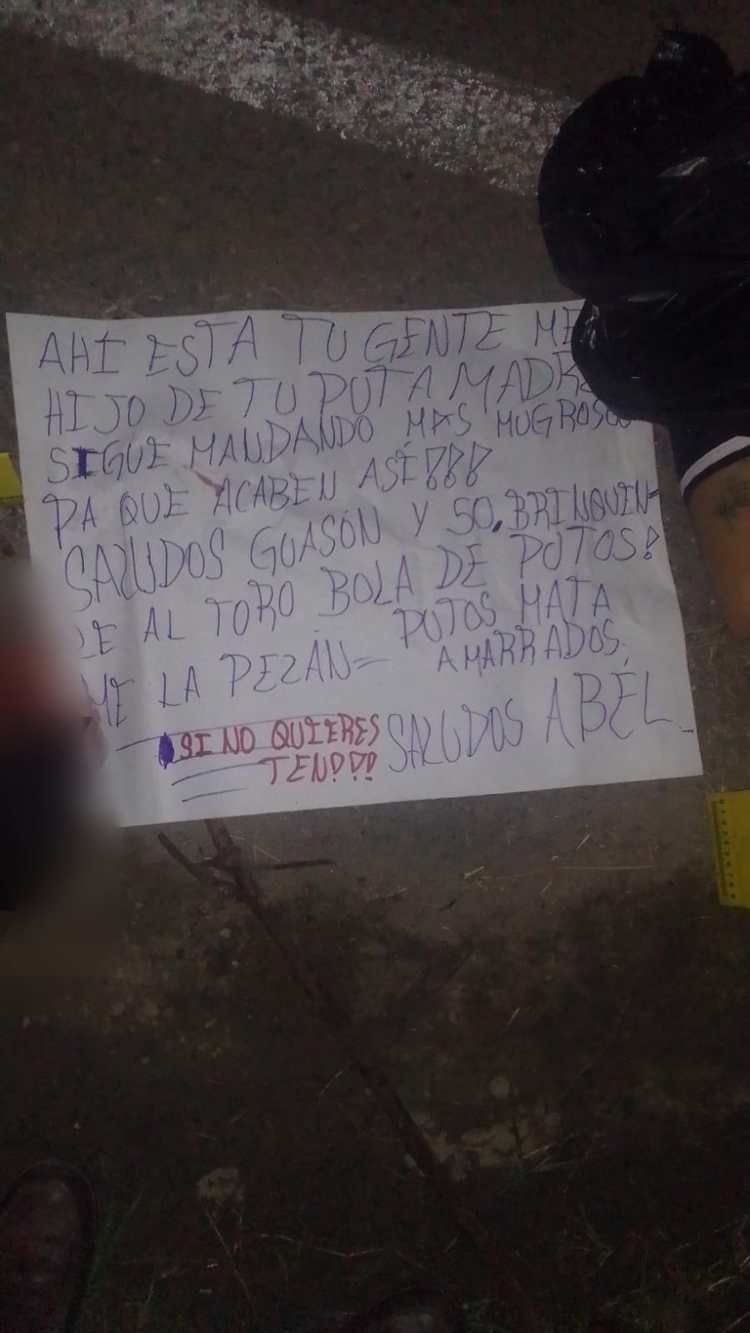 AHÍ ESTA TU GENTE
HIJO DE TU PUTA MADRE
SIGUE MANDANDO MAS MUGROSOS
PA QUE ACABEN ASÍ!!!
SALUDOS GUASÓN Y 50. BRINQUIN-
LE AL TORO BOLA DE PUTOS!
ME LA PEZÁN= PUTOS MATA
AMARRADOS.
SI NO QUIERES
TEN!!!
SALUDOS ABÉL